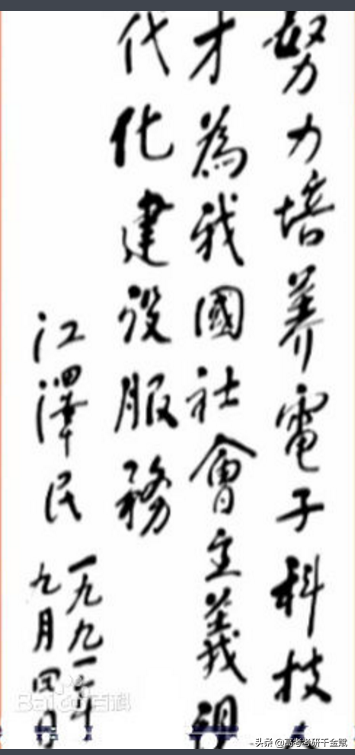 努力培養電子科技人
才為我國社會主義現
代化建設服務
江澤民
一九九一年
九月四日
Bai百科
头条